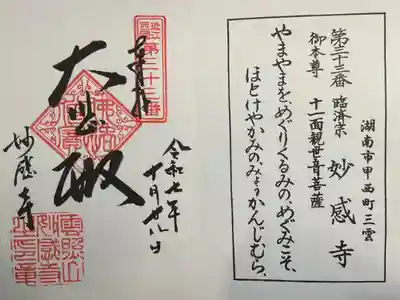 湖南市甲西町三雲
第三十三番 臨済宗 妙感寺
御本尊 十一面観世音菩薩
やまやまをめぐりくるみの、めぐみこそ、
ほとけやかみのみょうかんじむら、
近江西国
第三十三番
奉拝
令和七年
十月廿八日
大悲殿
妙感寺